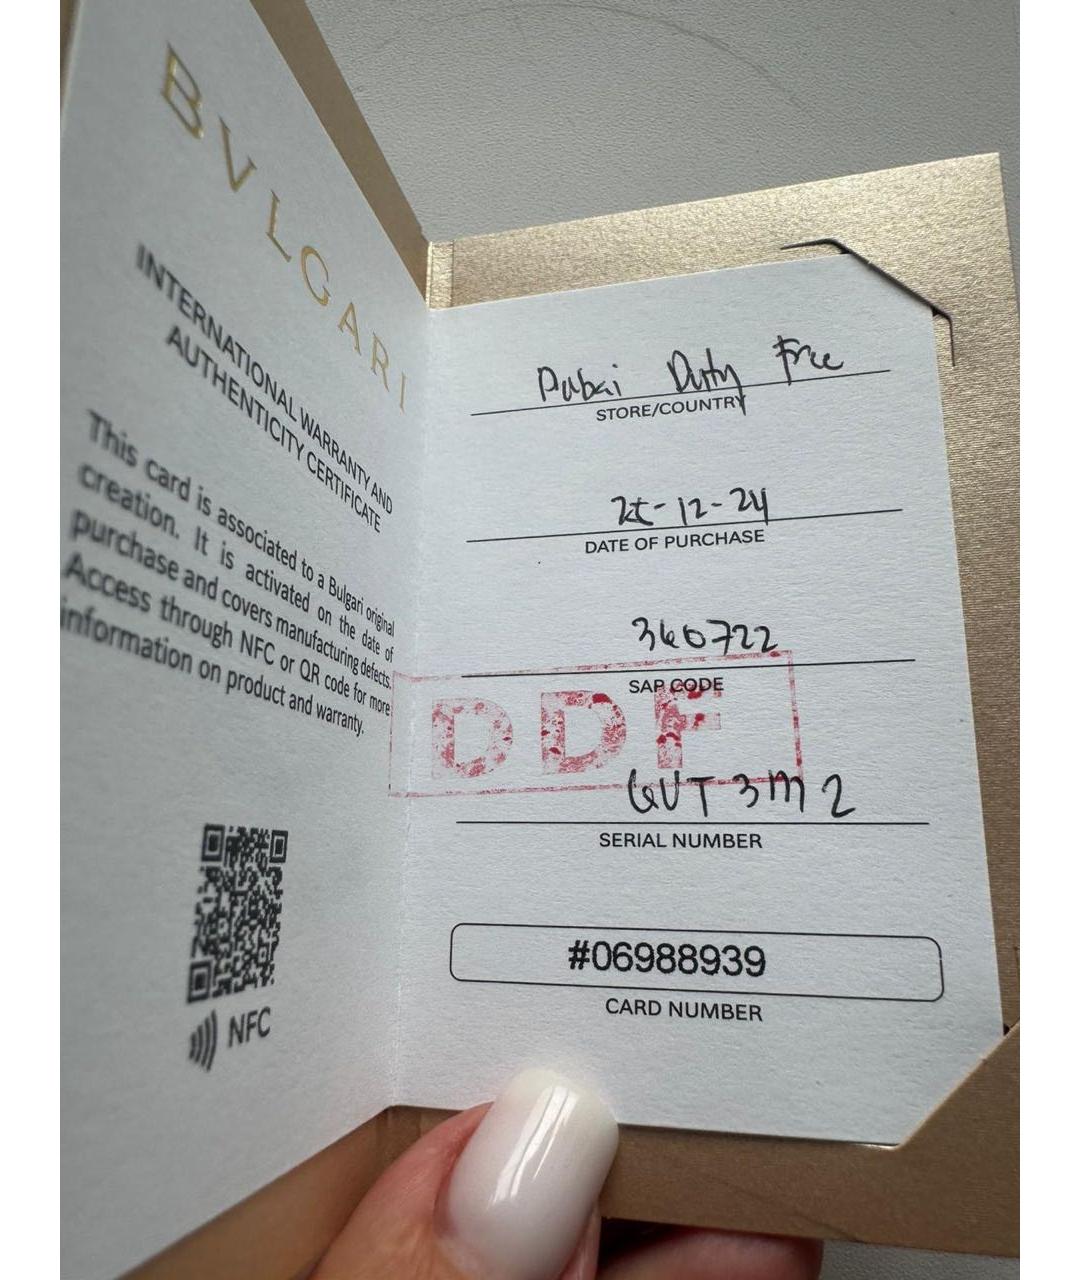 BVLGARI
INTERNATIONAL WARRANTY AND
AUTHENTICITY CERTIFICATE
This card is associated to a Bulgari original
creation. It is activated on the date of
purchase and covers manufacturing defects.
Access through NFC or QR code for more
information on product and warranty.
NFC
Dubai Duty Free
STORE/COUNTRY
25-12-24
DATE OF PURCHASE
360722
SAP CODE
DDF
GUT3M2
SERIAL NUMBER
#06988939
CARD NUMBER